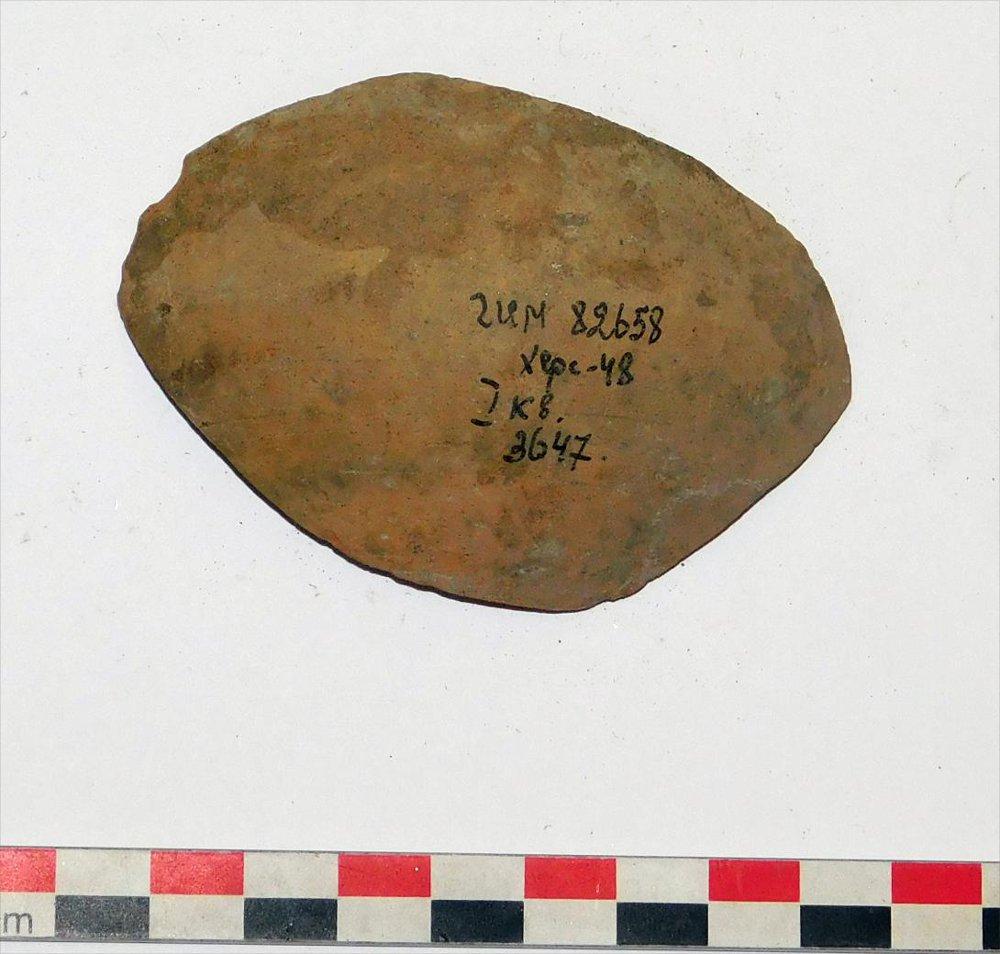 ГИМ 82658
Херс-48
I кв.
3647.
m